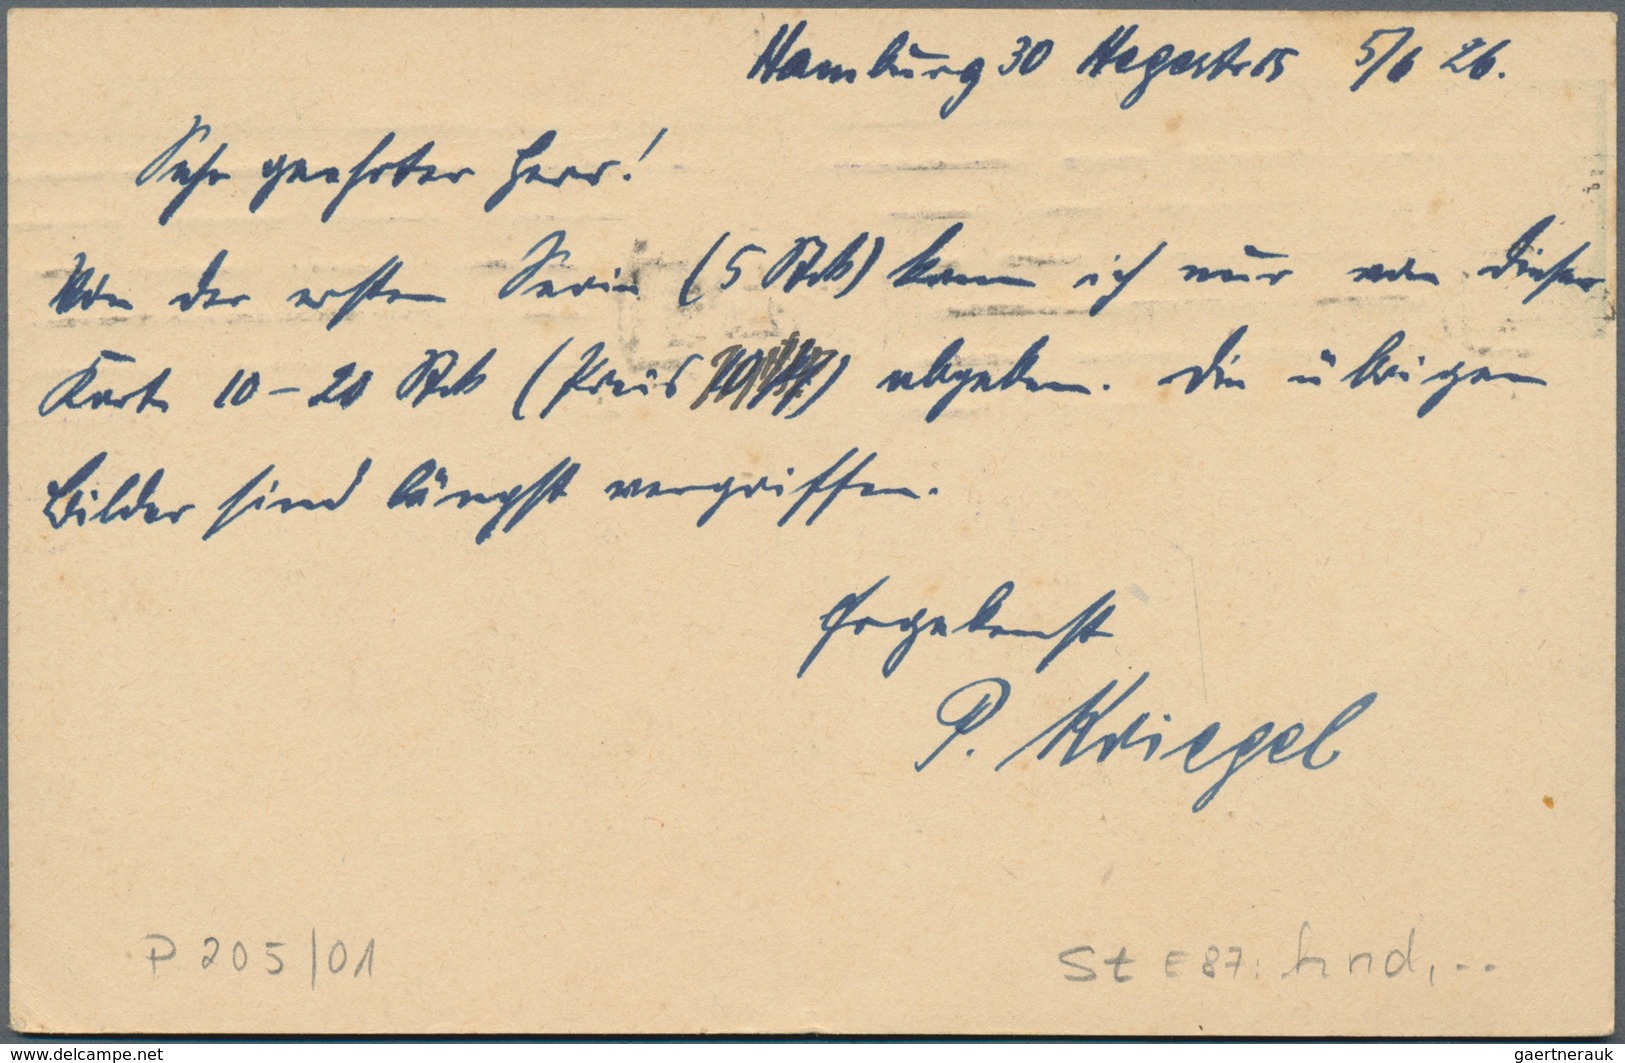 Hamburg 30 Hegestr 15 5/6 26.
Sehr geehrter Herr!
Von der ersten Serie (5 Stck) kann ich nur von dieser
Karte 10-20 Stck (Preis) abgeben. Die übrigen
Bilder sind längst vergriffen.
Ergebenst
P. Kriegel
P 205/01
St E 87: hnd, ..
www.delcampe.net
gaertnerauk